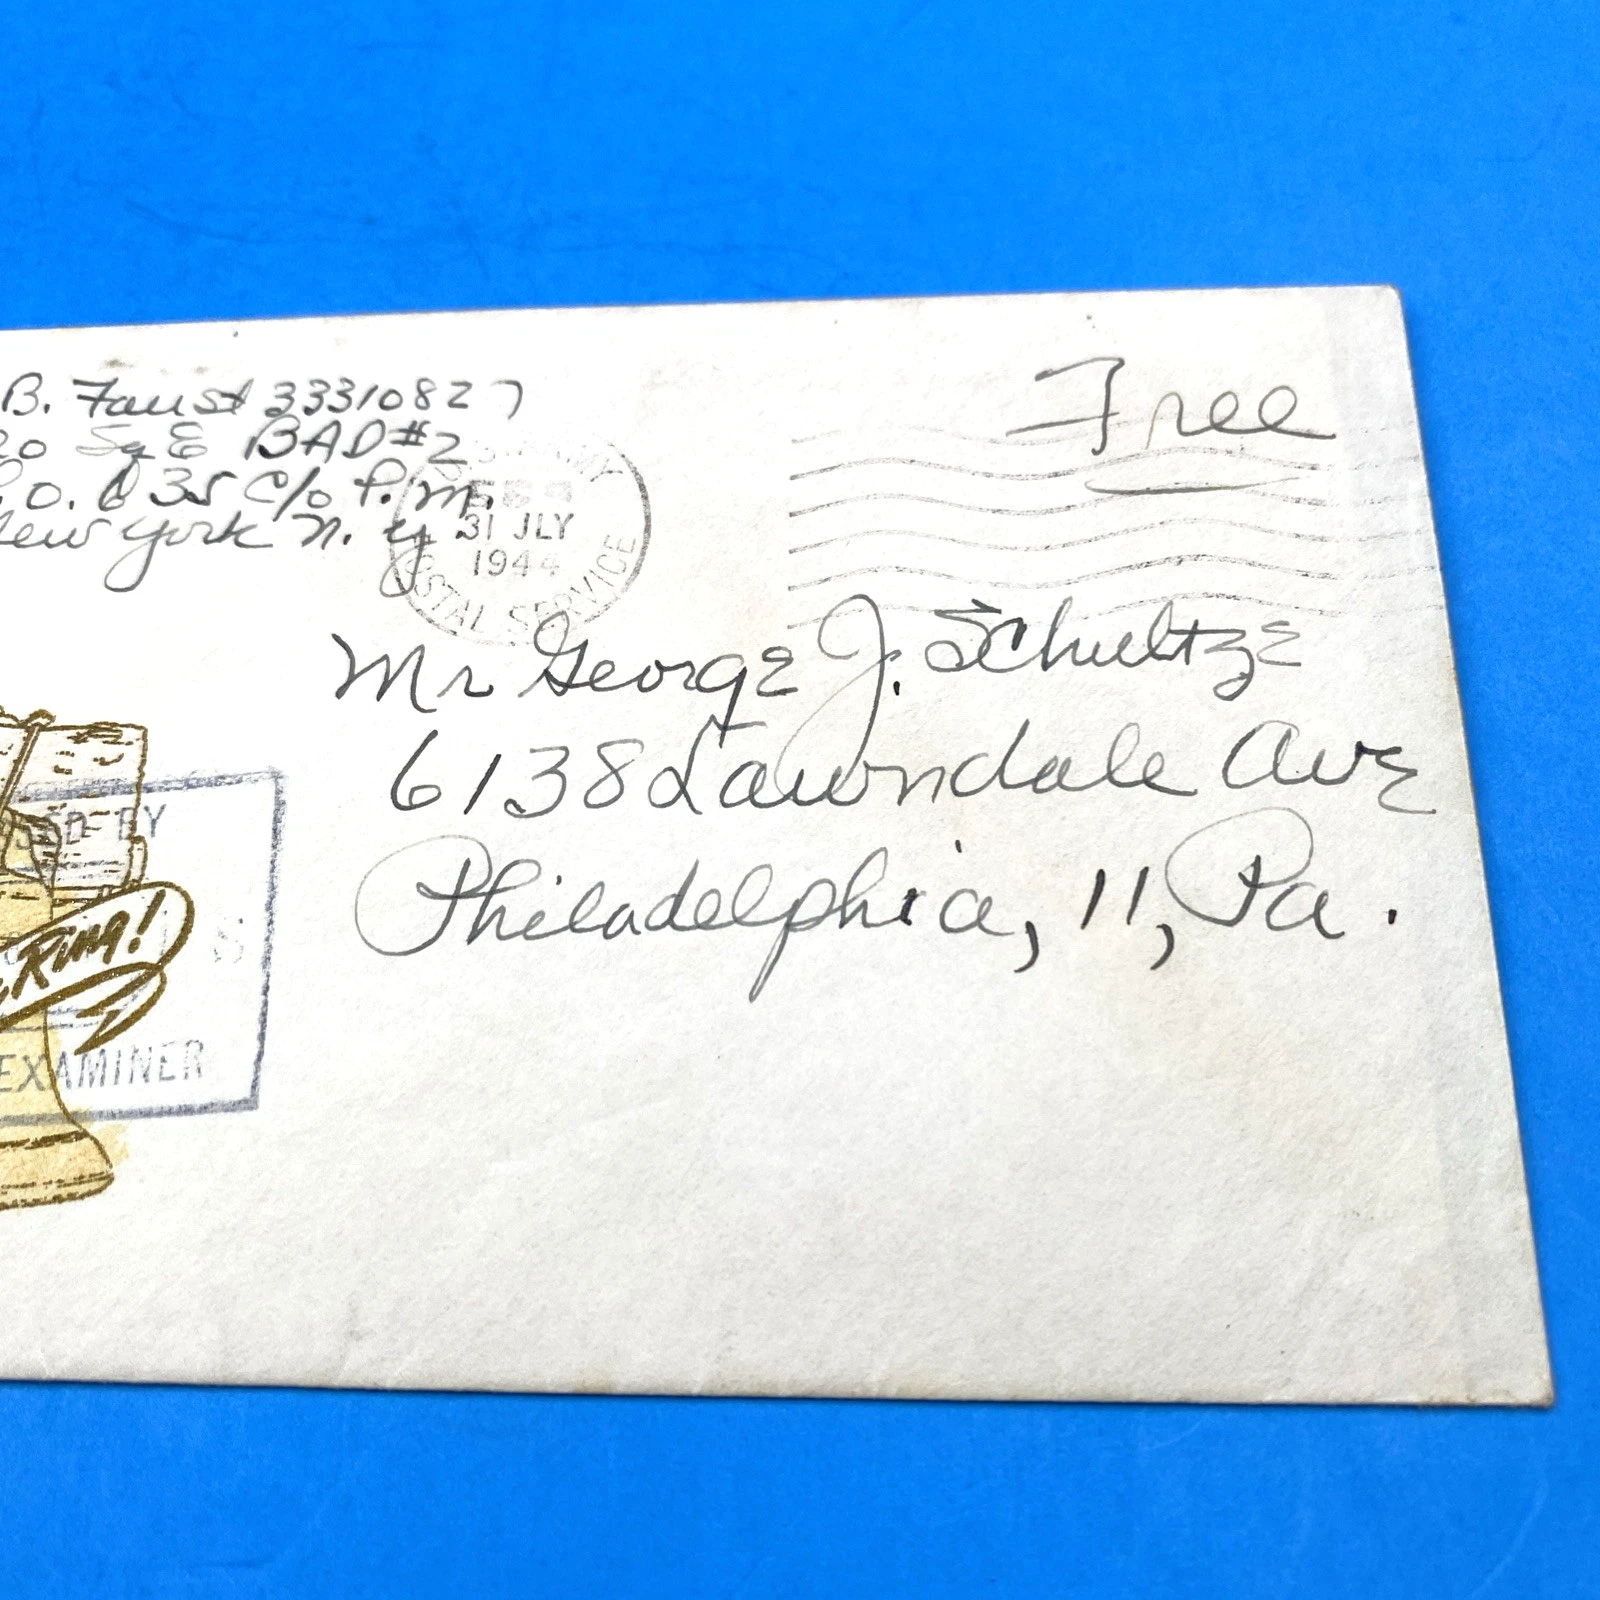 B. Faust 33310827
Sq E BAD #2
O. 635 c/o P.M.
New York N. Y
Free
ARMY
31 JLY
1944
POSTAL SERVICE
Mr George J. Schultze
6138 Lawndale Ave
Philadelphia, 11, Pa.
SED BY
Ring!
S
EXAMINER